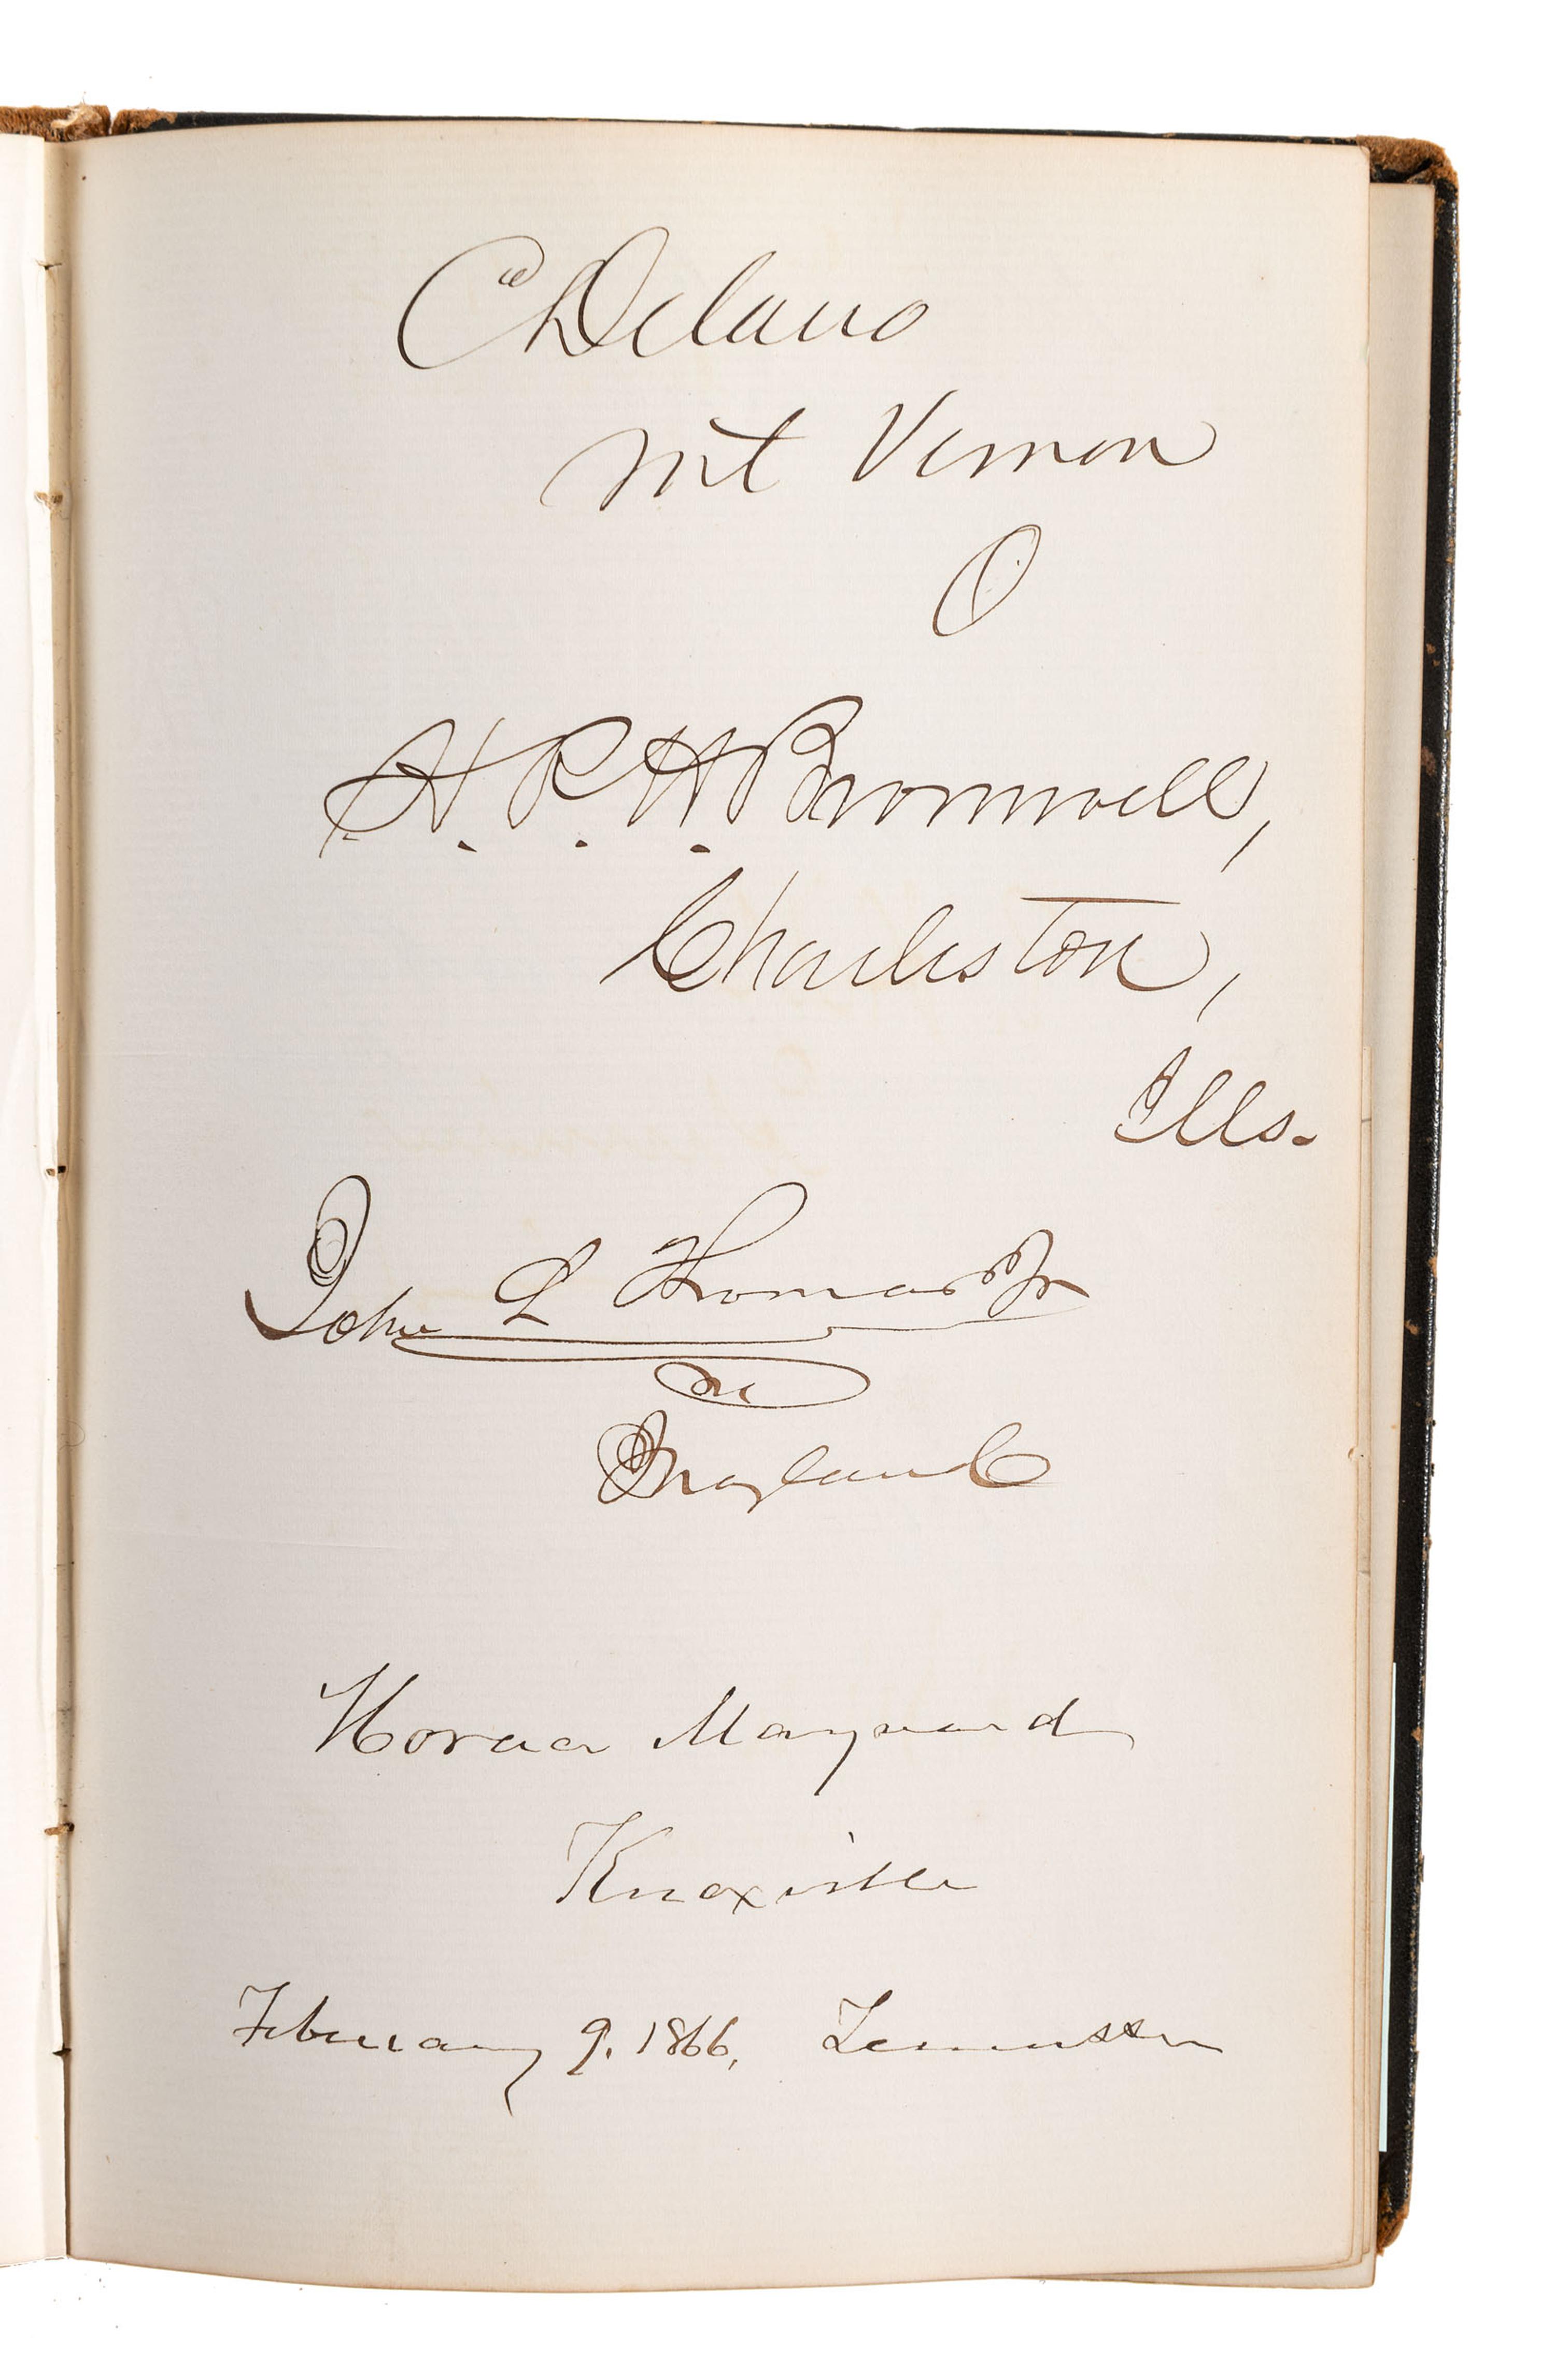 C Delano
Mt Vernon
O
H. P. H. Bromwell,
Charleston,
Ills.
John L Thomas Jr
Md
Maryland
Horace Maynard
Knoxville
February 9. 1866. Tennessee